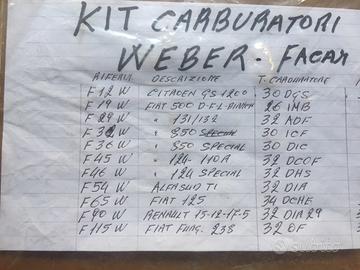 KIT CARBURATORI
WEBER - FACAR
RIFERIM DESCRIZIONE T. CARBURATORE
F12W CITROEN GS 1200 30 DGS
F19W FIAT 500 D-F-L-BIANCH 26 IMB
F29W " 131/132 32 ADF
F32W " 850 SPECIAL 30 ICF
F36W " 850 SPECIAL 30 DIC
F45W " 124- 32 DCOF
F46W " 124 SPECIAL 32 DHS
F54W ALFASUD TI 32 DIR
F65W FIAT 125 34 DCHE
F90W RENAULT 15-12-17-5 32 DIR 29
F115W FIAT FURG. 238 32 OF
subito